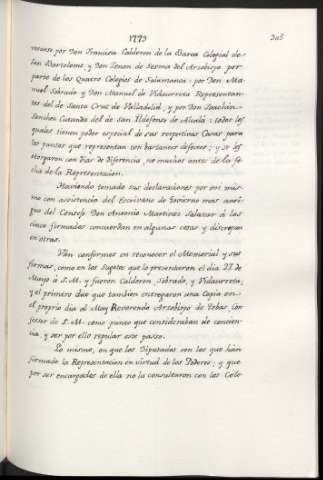 1773
205
recurso por Don Francisco Calderon de la Barca Colegial de
San Bartolome, y Don Senen de Sesma del Arzobispo por
parte de los Quatro Colegios de Salamanca: por Don Ma-
nuel Sobrado y Don Manuel de Vidaurreta Representan-
tes del de Santa Cruz de Valladolid, y por Don Joachin
Sanchez Cutanda del de San Ildefonso de Alcalá: todos los
quales tienen poder especial de sus respectivas Casas para
las pautas que representan son bastantes defensos; y se les
otorgaron con dias de diferencia, no muchos antes de la fe-
cha de la Representacion.
Haviendo tomado sus declaraciones por mi mis-
mo con assistencia del Escrivano de Govierno mas anti-
guo del Consejo Don Antonio Martinez Salazar á los
cinco firmados concuerdan en algunas cosas y discrepan
en otras.
Van conformes en reconocer el Memorial, y sus
firmas, como en los Sugetos que lo presentaron el dia 22 de
Mayo á S.M. y fueron Calderon, Sobrado, y Vidaurreta,
y el primero dice que tambien entregaron una Copia en
el proprio dia al Muy Reverendo Arzobispo de Tebas, Con-
fesor de S.M. como punto que consideraban de concien-
cia, y ser por ello regular este passo.
Lo mismo, en que los Diputados son los que han
firmado la Representacion en virtud de los Poderes; y que
por ser encargados de ella no la consultaron con los Cole-